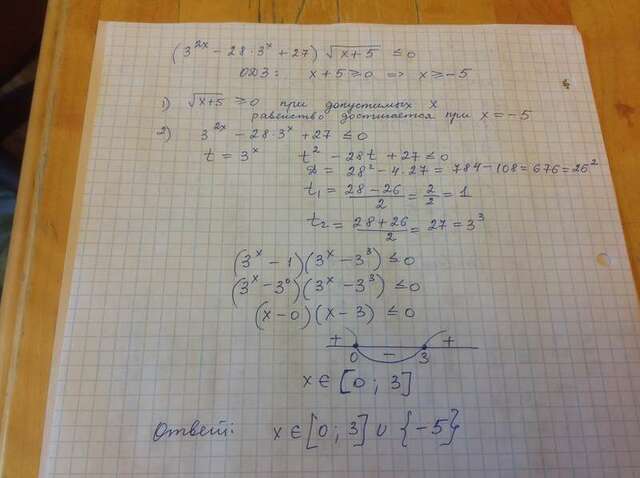 (3^{2x} - 28·3^x + 27) √(x+5) ≤ 0
ОДЗ: x+5 ≥ 0 => x ≥ -5
1) √(x+5) ≥ 0 при допустимых x
равенство достигается при x = -5
2) 3^{2x} - 28·3^x + 27 ≤ 0
t = 3^x t^2 - 28t + 27 ≤ 0
D = 28^2 - 4·27 = 784 - 108 = 676 = 26^2
t_1 = (28-26)/2 = 2/2 = 1
t_2 = (28+26)/2 = 27 = 3^3
(3^x - 1)(3^x - 3^3) ≤ 0
(3^x - 3^0)(3^x - 3^3) ≤ 0
(x-0)(x-3) ≤ 0
+ 0 - 3 +
x ∈ [0; 3]
Ответ: x ∈ [0; 3] ∪ {-5}